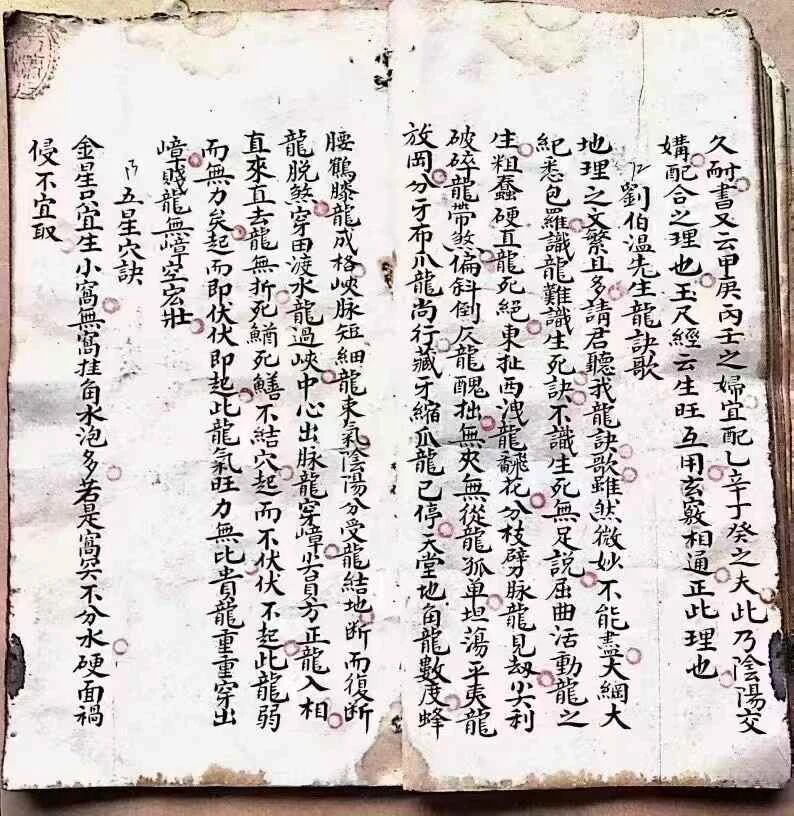 久耐書又云甲庚丙壬之婦宜配乙辛丁癸之夫此乃陰陽交
媾配合之理也玉尺經云生旺互用玄竅相通正此理也
劉伯溫先生龍訣歌
地理之文繁且多請君聽我龍訣歌雖然微妙不能盡大綱大
紀悉包羅識龍難識生死訣不識生死無足說屈曲活動龍之
生粗蠢硬直龍死絕東扯西洩龍飜花分枝劈脉龍見刼尖利
破碎龍帶煞偏斜倒仄龍醜拙無夾無從龍孤单坦蕩平夷龍
放岡分牙布爪龍尚行藏牙縮爪龍已停天堂地角龍數度蜂
腰鶴膝龍成格峽脉短細龍束氣陰陽分受龍結地断而復断
龍脫煞穿田渡水龍過峽中心出脉龍穿嶂尖貝方正龍入相
直來直去龍無折死鰌死鱔不結穴起而不伏伏不起此龍弱
而無力矣起而即伏伏即起此龍氣旺力無比貴龍重重穿出
嶂賤龍無嶂空宏壯
五星穴訣
金星只宜生小窩無窩挂角水泡多若是窩冥不分水硬面禍
侵不宜取